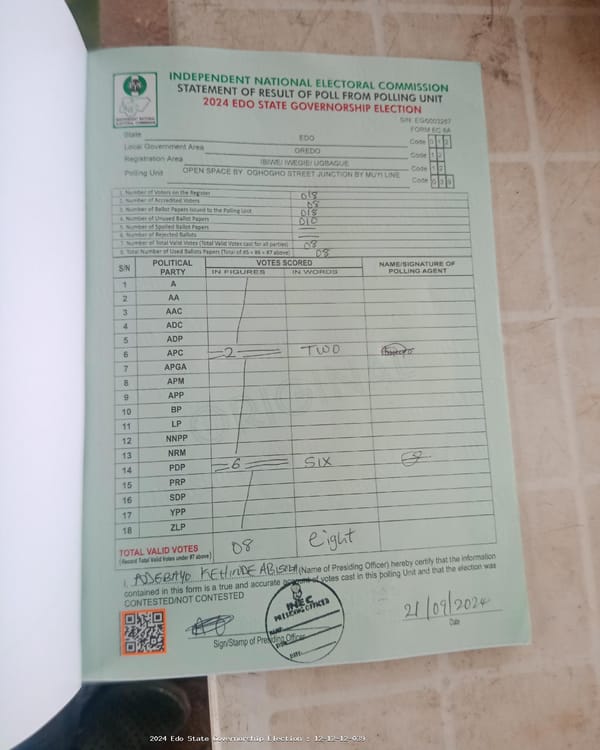 INDEPENDENT NATIONAL ELECTORAL COMMISSION
STATEMENT OF RESULT OF POLL FROM POLLING UNIT
2024 EDO STATE GOVERNORSHIP ELECTION
S/N: EG/0003267
FORM EC 8A
State EDO Code 0 1 2
Local Government Area OREDO Code 1 2
Registration Area IBIWE/ IWEGIE/ UGBAGUE Code 1 2
Polling Unit OPEN SPACE BY OGHOGHO STREET JUNCTION BY MUYI LINE Code 0 3 9
1. Number of Voters on the Register 018
2. Number of Accredited Voters 08
3. Number of Ballot Papers Issued to the Polling Unit 018
4. Number of Unused Ballot Papers 010
5. Number of Spoiled Ballot Papers
6. Number of Rejected Ballots
7. Number of Total Valid Votes (Total Valid Votes cast for all parties) 08
8. Total Number of Used Ballots Papers (Total of #5 + #6 + #7 above) 08
S/N POLITICAL PARTY VOTES SCORED NAME/SIGNATURE OF POLLING AGENT
IN FIGURES IN WORDS
1 A
2 AA
3 AAC
4 ADC
5 ADP
6 APC 2 TWO
7 APGA
8 APM
9 APP
10 BP
11 LP
12 NNPP
13 NRM
14 PDP 6 SIX
15 PRP
16 SDP
17 YPP
18 ZLP
ORIGINAL
TOTAL VALID VOTES 08 eight
(Record Total Valid Votes under #7 above)
I, ADEBAYO KEHINDE ABISOLA (Name of Presiding Officer) hereby certify that the information
contained in this form is a true and accurate account of votes cast in this polling Unit and that the election was
CONTESTED/NOT CONTESTED
INEC
PRESIDING OFFICER
NAME:
SIGN:
DATE:
Sign/Stamp of Presiding Officer
21/09/2024
Date
2024 Edo State Governorship Election : 12-12-12-039